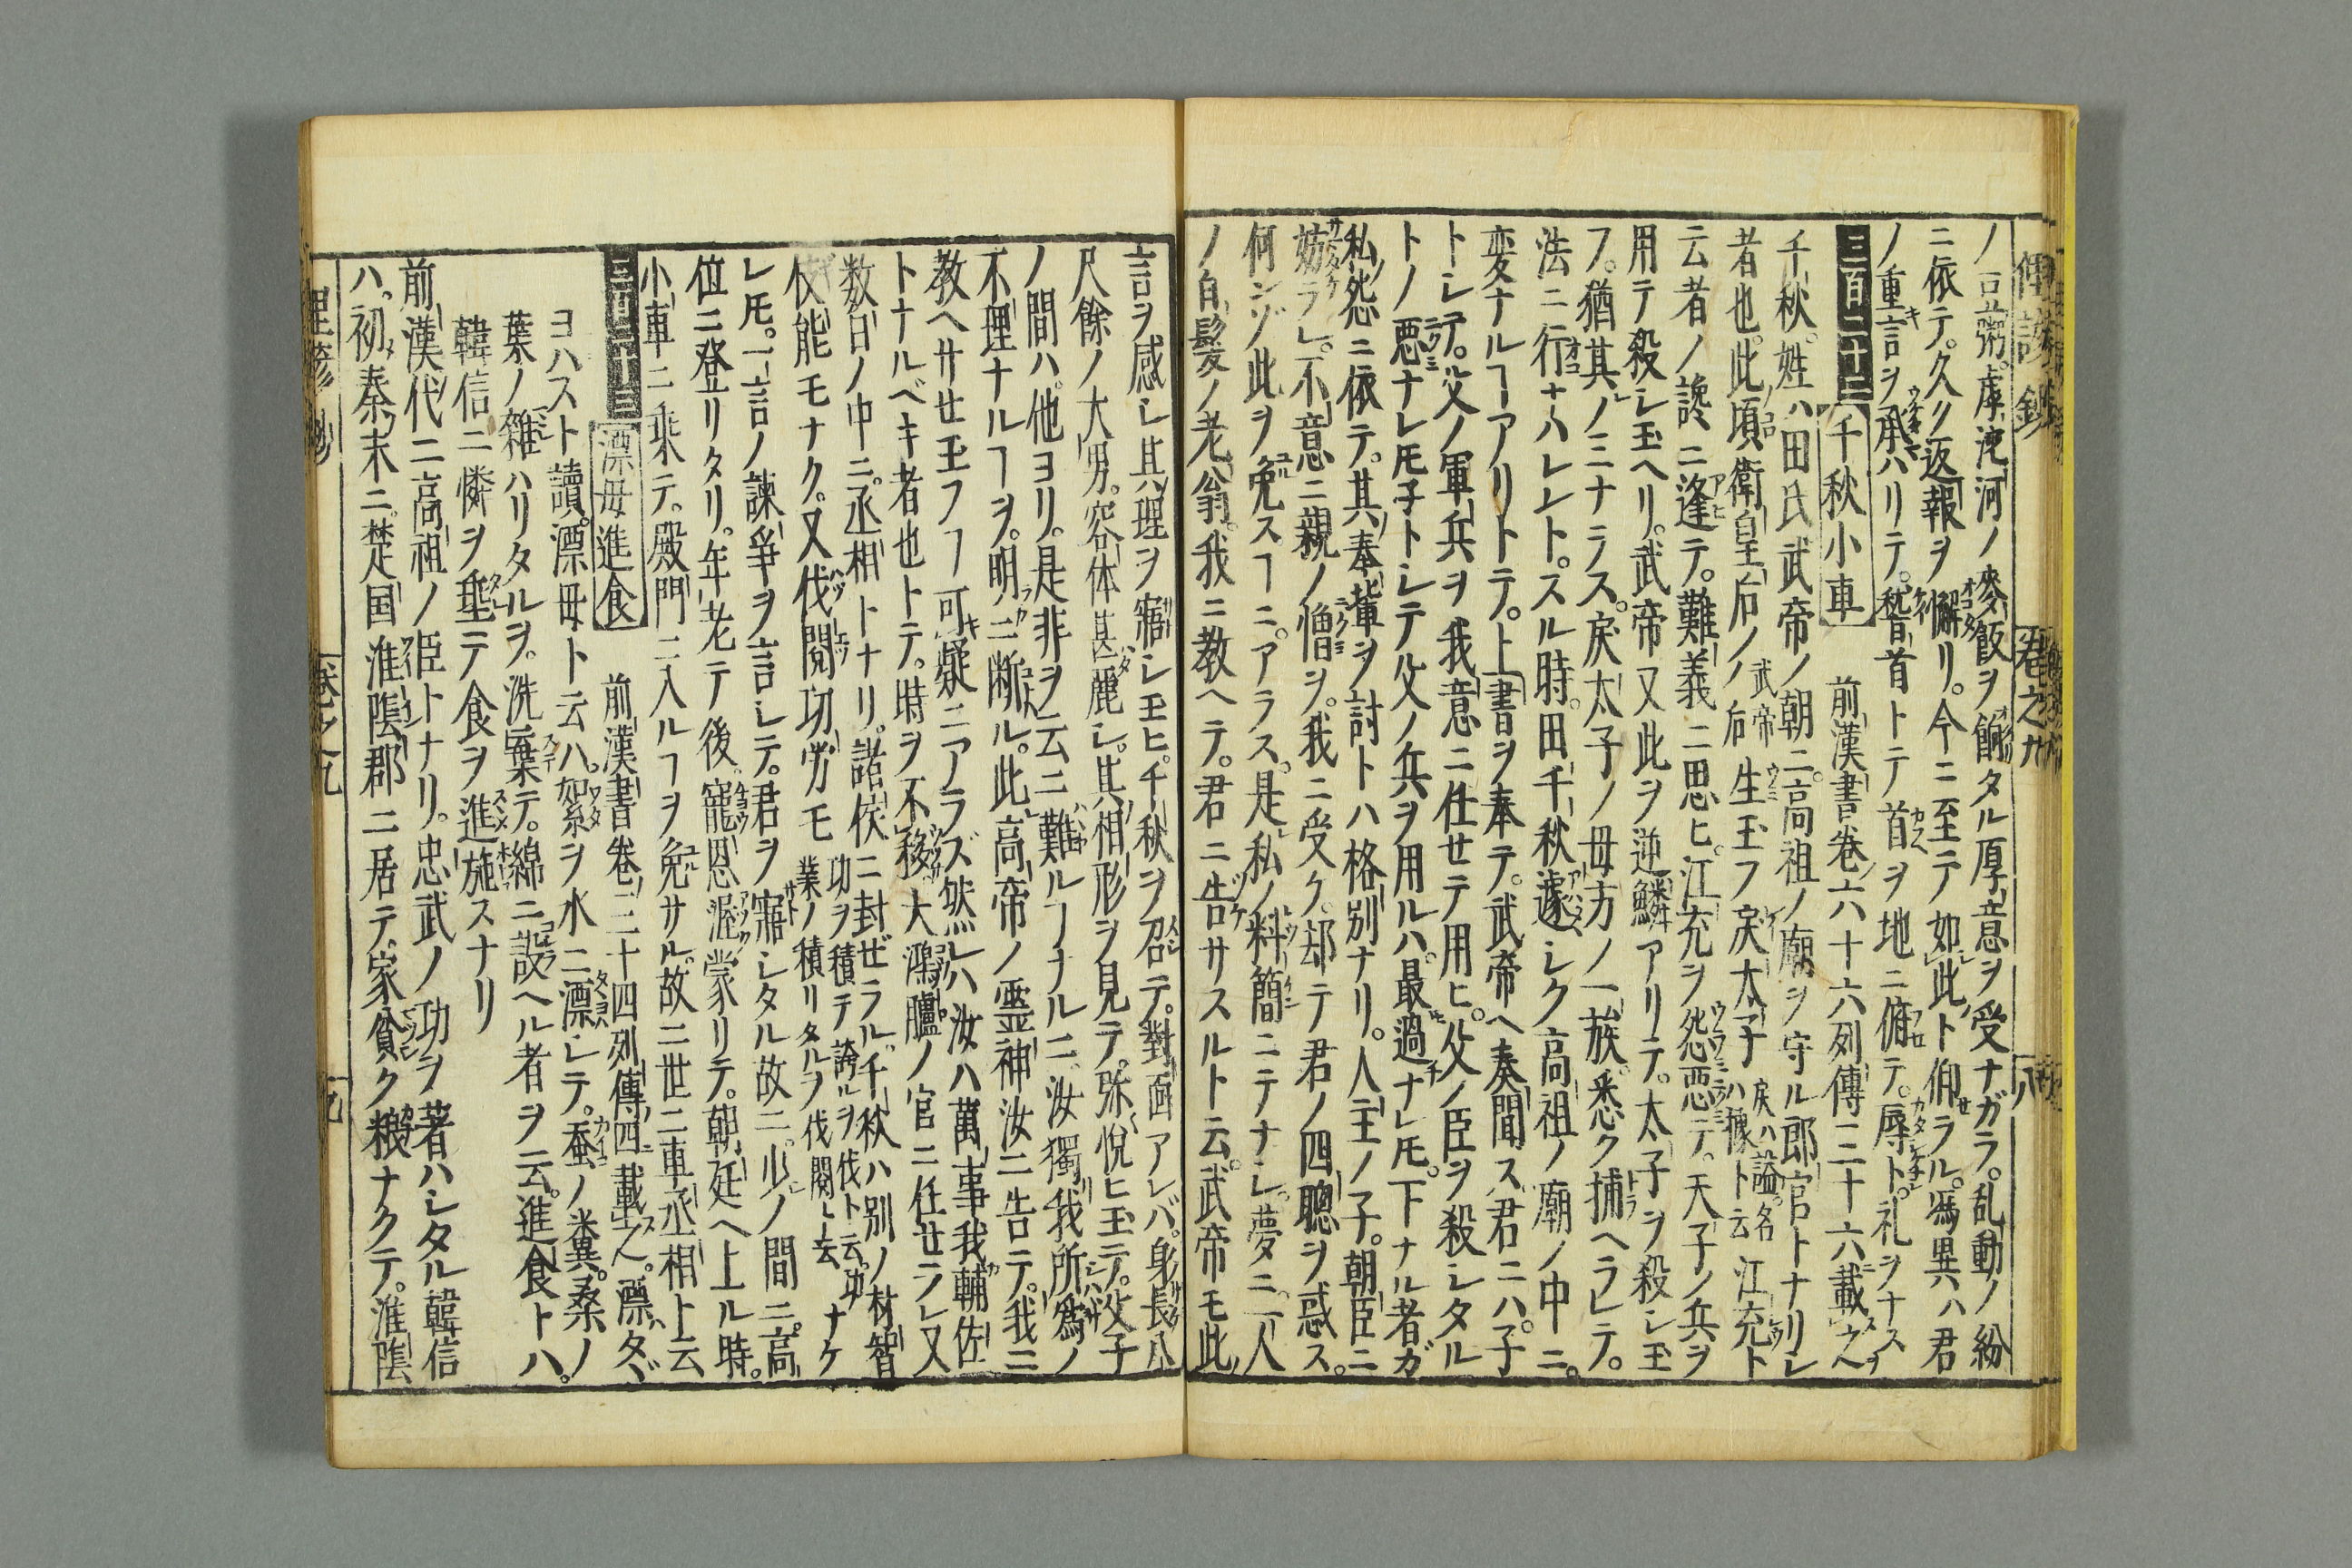 俚諺鈔 巻之九 八
ノ豆粥虖沱河ノ麥飯ヲ餉タル厚意ヲ受ナガラ。乱動ノ紛
ニ依テ。久ク返報ヲ懈リ。今ニ至テ如此ト仰ラル。馮異ハ君
ノ重言ヲ承ハリテ。稽首トテ首ヲ地ニ俯テ。辱ト。礼ヲナス
三百二十二 千秋小車 前漢書巻六十六列傳三十六載之
千秋。姓ハ田氏武帝ノ朝ニ。高祖ノ廟ヲ守ル郎官トナリシ
者也。此頃衛皇后ノ 武帝ノ后 生玉フ戻太子 戻ハ謚。名ハ據ト云 江充ト
云者ノ讒ニ逢テ。難義ニ思ヒ。江充ヲ怨悪テ。天子ノ兵ヲ
用テ殺シ玉ヘリ。武帝又此ヲ逆鱗アリテ。太子ヲ殺シ玉
フ。猶其ノミナラス。戻太子ノ母方ノ一族悉ク捕ヘラレテ。
法ニ行ナハレシト。スル時。田千秋遽シク高祖ノ廟ノ中ニ。
変ナルヿアリトテ。上書ヲ奉テ。武帝ヘ奏聞ス君ニハ。子
トシテ。父ノ軍兵ヲ我意ニ仕セテ用ヒ。父ノ臣ヲ殺シタル
トノ悪ナレ𪜈子トシテ父ノ兵ヲ用ルハ。最過ナレ𪜈。下ナル者ガ
私怨ニ依テ。其奉輩ヲ討トハ格別ナリ。人主ノ子。朝臣ニ
妨ラレ。不意ニ親ノ憎ヲ。我ニ受ク。却テ君ノ四聰ヲ惑ス。
何ンゾ此ヲ免スヿニ。アラス。是私ノ料簡ニテナシ。夢ニ一人
ノ白髪ノ老翁。我ニ教ヘテ。君ニ告サスルト云。武帝モ此
言ヲ感シ其理ヲ寤シ玉ヒ。千秋ヲ召テ。對面アレバ。身長八
尺餘ノ大男。容体甚麗シ。其相形ヲ見テ。弥悅ヒ玉テ。父子
ノ間ハ。他ヨリ。是非ヲ云ニ難ルヿナルニ。汝獨我所為ノ
不理ナルヿヲ。明ニ断ル。此高帝ノ霊神汝ニ告テ。我ニ
教ヘサせ玉フヿ可疑ニアラズ然レハ汝ハ萬事我輔佐
トナルベキ者也トテ。時ヲ不移。大鴻臚ノ官ニ任せラレ又
数日ノ中ニ。丞相トナリ。諸侯ニ封ぜラル。千秋ハ別ノ材智
伎能モナク。又伐閲功労モ 功ヲ積テ誇ルヲ伐ト云。功業ノ積リタルヲ伐閲ト云 ナケ
レ𪜈。一言ノ諫爭ヲ言シテ。君ヲ寤シタル故ニ。少ノ間ニ。高
位ニ登リタリ。年老テ後。寵恩渥蒙リテ。朝廷ヘ上ル時。
小車ニ乗テ。殿門ニ入ルヿヲ免サル。故ニ世ニ車丞相ト云
三百二十三 漂母進食 前漢書巻三十四列傳四載之。漂ハタヾ
ヨハスト讀。漂母ト云ハ。絮ヲ水ニ漂シテ。蚕ノ糞。桑ノ
葉ノ雑ハリタルヲ。洗棄テ。綿ニ設ヘル者ヲ云。進食トハ。
韓信ニ憐ヲ垂テ食ヲ進施スナリ
前漢代ニ高祖ノ臣トナリ。忠武ノ功ヲ著ハシタル韓信
ハ。初秦末ニ。楚国淮陰郡ニ居テ。家貧ク糧ナクテ。淮陰
俚諺鈔 巻之九 九